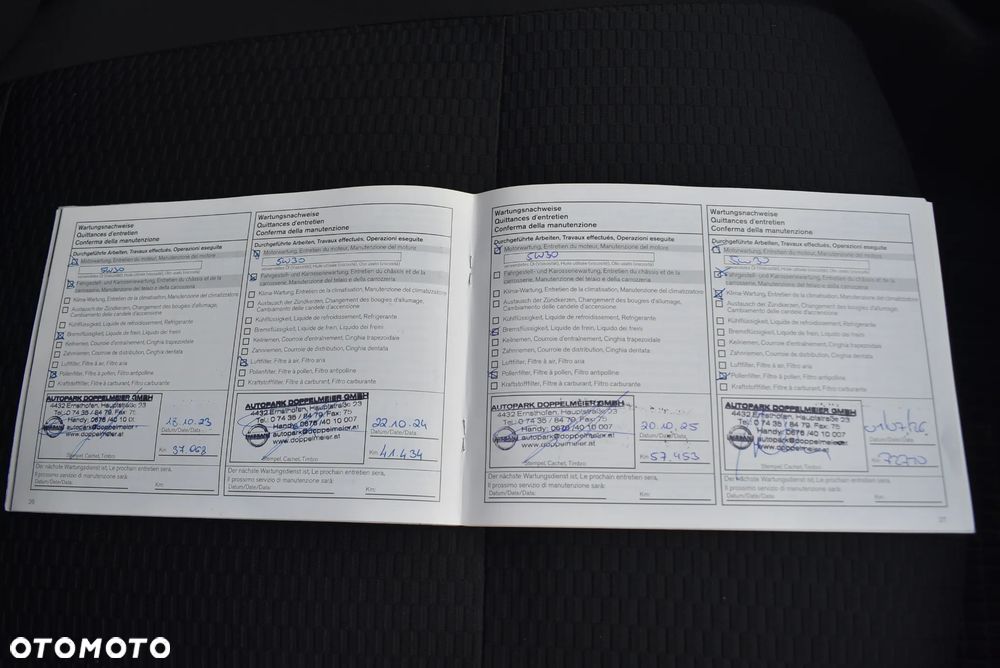 Wartungsnachweise
Quittances d'entretien
Conferma della manutenzione
Durchgeführte Arbeiten, Travaux effectués, Operazioni eseguite
Motorwartung, Entretien du moteur, Manutenzione del motore
5W30
verwendetes Öl (Viskosität), Huile utilisée (viscosité), Olio usato (viscosità)
Fahrgestell- und Karosseriewartung, Entretien du châssis et de la
carrosserie, Manutenzione del telaio e della carrozzeria
Klima-Wartung, Entretien de la climatisation, Manutenzione del climatizzatore
Austausch der Zündkerzen, Changement des bougies d'allumage,
Cambiamento delle candele d'accensione
Kühlflüssigkeit, Liquide de refroidissement, Refrigerante
Bremsflüssigkeit, Liquide de frein, Liquido dei freni
Keilriemen, Courroie d'entraînement, Cinghia trapezoidale
Zahnriemen, Courroie de distribution, Cinghia dentata
Luftfilter, Filtre à air, Filtro aria
Pollenfilter, Filtre à pollen, Filtro antipolline
Kraftstofffilter, Filtre à carburant, Filtro carburante
AUTOPARK DOPPELMEIER GMBH
4432 Ernsthofen, Hauptstraße 23
Tel.: 0 74 35 / 84 79, Fax: 75
Handy: 0676 /40 10 0
NISSAN autopark@doppelmeier.at
www.doppelmeier.at
Stempel, Cachet, Timbro
18.10.23
Datum/Date/Data:
Km: 37.063
Der nächste Wartungsdienst ist, Le prochain entretien sera,
Il prossimo servizio di manutenzione sarà:
Datum/Date/Data: Km:
26
Wartungsnachweise
Quittances d'entretien
Conferma della manutenzione
Durchgeführte Arbeiten, Travaux effectués, Operazioni eseguite
Motorwartung, Entretien du moteur, Manutenzione del motore
5W30
verwendetes Öl (Viskosität), Huile utilisée (viscosité), Olio usato (viscosità)
Fahrgestell- und Karosseriewartung, Entretien du châssis et de la
carrosserie, Manutenzione del telaio e della carrozzeria
Klima-Wartung, Entretien de la climatisation, Manutenzione del climatizzatore
Austausch der Zündkerzen, Changement des bougies d'allumage,
Cambiamento delle candele d'accensione
Kühlflüssigkeit, Liquide de refroidissement, Refrigerante
Bremsflüssigkeit, Liquide de frein, Liquido dei freni
Keilriemen, Courroie d'entraînement, Cinghia trapezoidale
Zahnriemen, Courroie de distribution, Cinghia dentata
Luftfilter, Filtre à air, Filtro aria
Pollenfilter, Filtre à pollen, Filtro antipolline
Kraftstofffilter, Filtre à carburant, Filtro carburante
AUTOPARK DOPPELMEIER GMBH
4432 Ernsthofen, Hauptstraße 23
Tel.: 0 74 35 / 84 79, Fax: 75
Handy: 0676 /40 10 007
NISSAN autopark@doppelmeier.at
www.doppelmeier.at
Stempel, Cachet, Timbro
22.10.24
Datum/Date/Data:
Km: 41.434
Der nächste Wartungsdienst ist, Le prochain entretien sera,
Il prossimo servizio di manutenzione sarà:
Datum/Date/Data: Km:
Wartungsnachweise
Quittances d'entretien
Conferma della manutenzione
Durchgeführte Arbeiten, Travaux effectués, Operazioni eseguite
Motorwartung, Entretien du moteur, Manutenzione del motore
5W30
verwendetes Öl (Viskosität), Huile utilisée (viscosité), Olio usato (viscosità)
Fahrgestell- und Karosseriewartung, Entretien du châssis et de la
carrosserie, Manutenzione del telaio e della carrozzeria
Klima-Wartung, Entretien de la climatisation, Manutenzione del climatizzatore
Austausch der Zündkerzen, Changement des bougies d'allumage,
Cambiamento delle candele d'accensione
Kühlflüssigkeit, Liquide de refroidissement, Refrigerante
Bremsflüssigkeit, Liquide de frein, Liquido dei freni
Keilriemen, Courroie d'entraînement, Cinghia trapezoidale
Zahnriemen, Courroie de distribution, Cinghia dentata
Luftfilter, Filtre à air, Filtro aria
Pollenfilter, Filtre à pollen, Filtro antipolline
Kraftstofffilter, Filtre à carburant, Filtro carburante
AUTOPARK DOPPELMEIER GMBH
4432 Ernsthofen, Hauptstraße 23
Tel.: 0 74 35 / 84 79, Fax: 75
Handy: 0676 /40 10 007
NISSAN autopark@doppelmeier.at
www.doppelmeier.at
Stempel, Cachet, Timbro
20.10.25
Datum/Date/Data:
Km: 57.453
Der nächste Wartungsdienst ist, Le prochain entretien sera,
Il prossimo servizio di manutenzione sarà:
Datum/Date/Data: Km:
Wartungsnachweise
Quittances d'entretien
Conferma della manutenzione
Durchgeführte Arbeiten, Travaux effectués, Operazioni eseguite
Motorwartung, Entretien du moteur, Manutenzione del motore
5W30
verwendetes Öl (Viskosität), Huile utilisée (viscosité), Olio usato (viscosità)
Fahrgestell- und Karosseriewartung, Entretien du châssis et de la
carrosserie, Manutenzione del telaio e della carrozzeria
Klima-Wartung, Entretien de la climatisation, Manutenzione del climatizzatore
Austausch der Zündkerzen, Changement des bougies d'allumage,
Cambiamento delle candele d'accensione
Kühlflüssigkeit, Liquide de refroidissement, Refrigerante
Bremsflüssigkeit, Liquide de frein, Liquido dei freni
Keilriemen, Courroie d'entraînement, Cinghia trapezoidale
Zahnriemen, Courroie de distribution, Cinghia dentata
Luftfilter, Filtre à air, Filtro aria
Pollenfilter, Filtre à pollen, Filtro antipolline
Kraftstofffilter, Filtre à carburant, Filtro carburante
AUTOPARK DOPPELMEIER GMBH
4432 Ernsthofen, Hauptstraße 23
Tel.: 0 74 35 / 84 79, Fax: 75
Handy: 0676 /40 10 007
NISSAN autopark@doppelmeier.at
www.doppelmeier.at
Stempel, Cachet, Timbro
Datum/Date/Data:
Km:
Der nächste Wartungsdienst ist, Le prochain entretien sera,
Il prossimo servizio di manutenzione sarà:
Datum/Date/Data: Km:
27
OTOMOTO